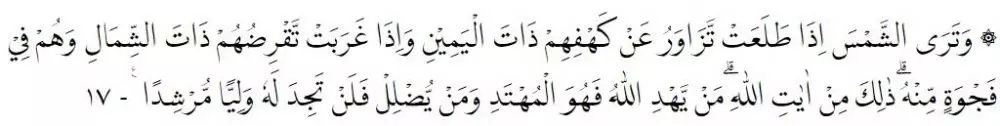 ۞ وَتَرَى الشَّمْسَ اِذَا طَلَعَتْ تَّزَاوَرُ عَنْ كَهْفِهِمْ ذَاتَ الْيَمِيْنِ وَاِذَا غَرَبَتْ تَّقْرِضُهُمْ ذَاتَ الشِّمَالِ وَهُمْ فِيْ
فَجْوَةٍ مِّنْهُۗ ذٰلِكَ مِنْ اٰيٰتِ اللّٰهِ ۗمَنْ يَّهْدِ اللّٰهُ فَهُوَ الْمُهْتَدِ وَمَنْ يُّضْلِلْ فَلَنْ تَجِدَ لَهٗ وَلِيًّا مُّرْشِدًا ࣖ - ١٧